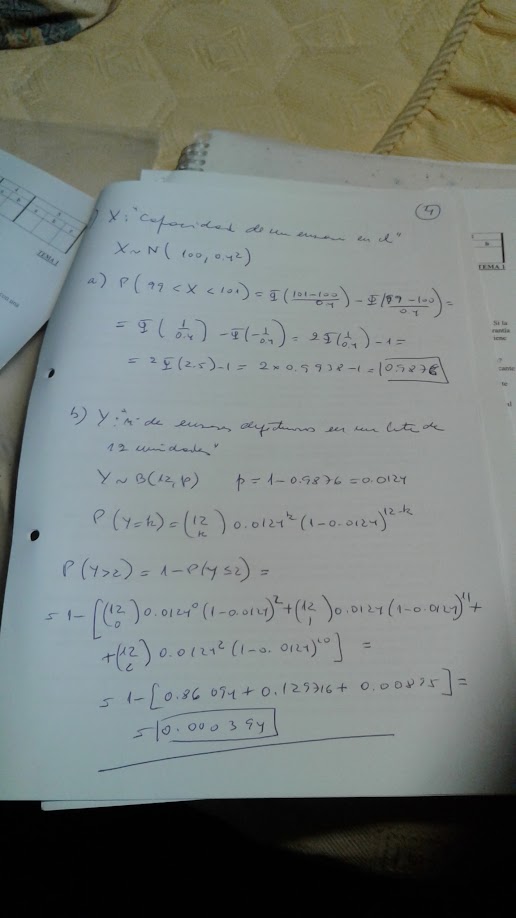 4
) X: "Capacidad de un envase en cl"
X ~ N( 100, 0.4²)
a) P( 99 < X < 101) = Φ( (101-100)/0.4 ) - Φ( (99-100)/0.4 ) =
= Φ( 1/0.4 ) - Φ( -1/0.4 ) = 2Φ( 1/0.4 ) - 1 =
= 2Φ(2.5) - 1 = 2 × 0.9938 - 1 = 0.9876
b) Y: "nº de envases defectuosos en un lote de
12 unidades"
Y ~ B(12, p)    p = 1 - 0.9876 = 0.0124
P(Y=k) = (12 k) 0.0124^k (1-0.0124)^12-k
P(Y>2) = 1 - P(Y≤2) =
= 1 - [(12 0) 0.0124⁰ (1-0.0124)² + (12 1) 0.0124 (1-0.0124)¹¹ +
+ (12 2) 0.0124² (1-0.0124)¹⁰] =
= 1 - [0.86094 + 0.129716 + 0.00895] =
= 0.000394
TEMA 1
TEMA 1
Si la